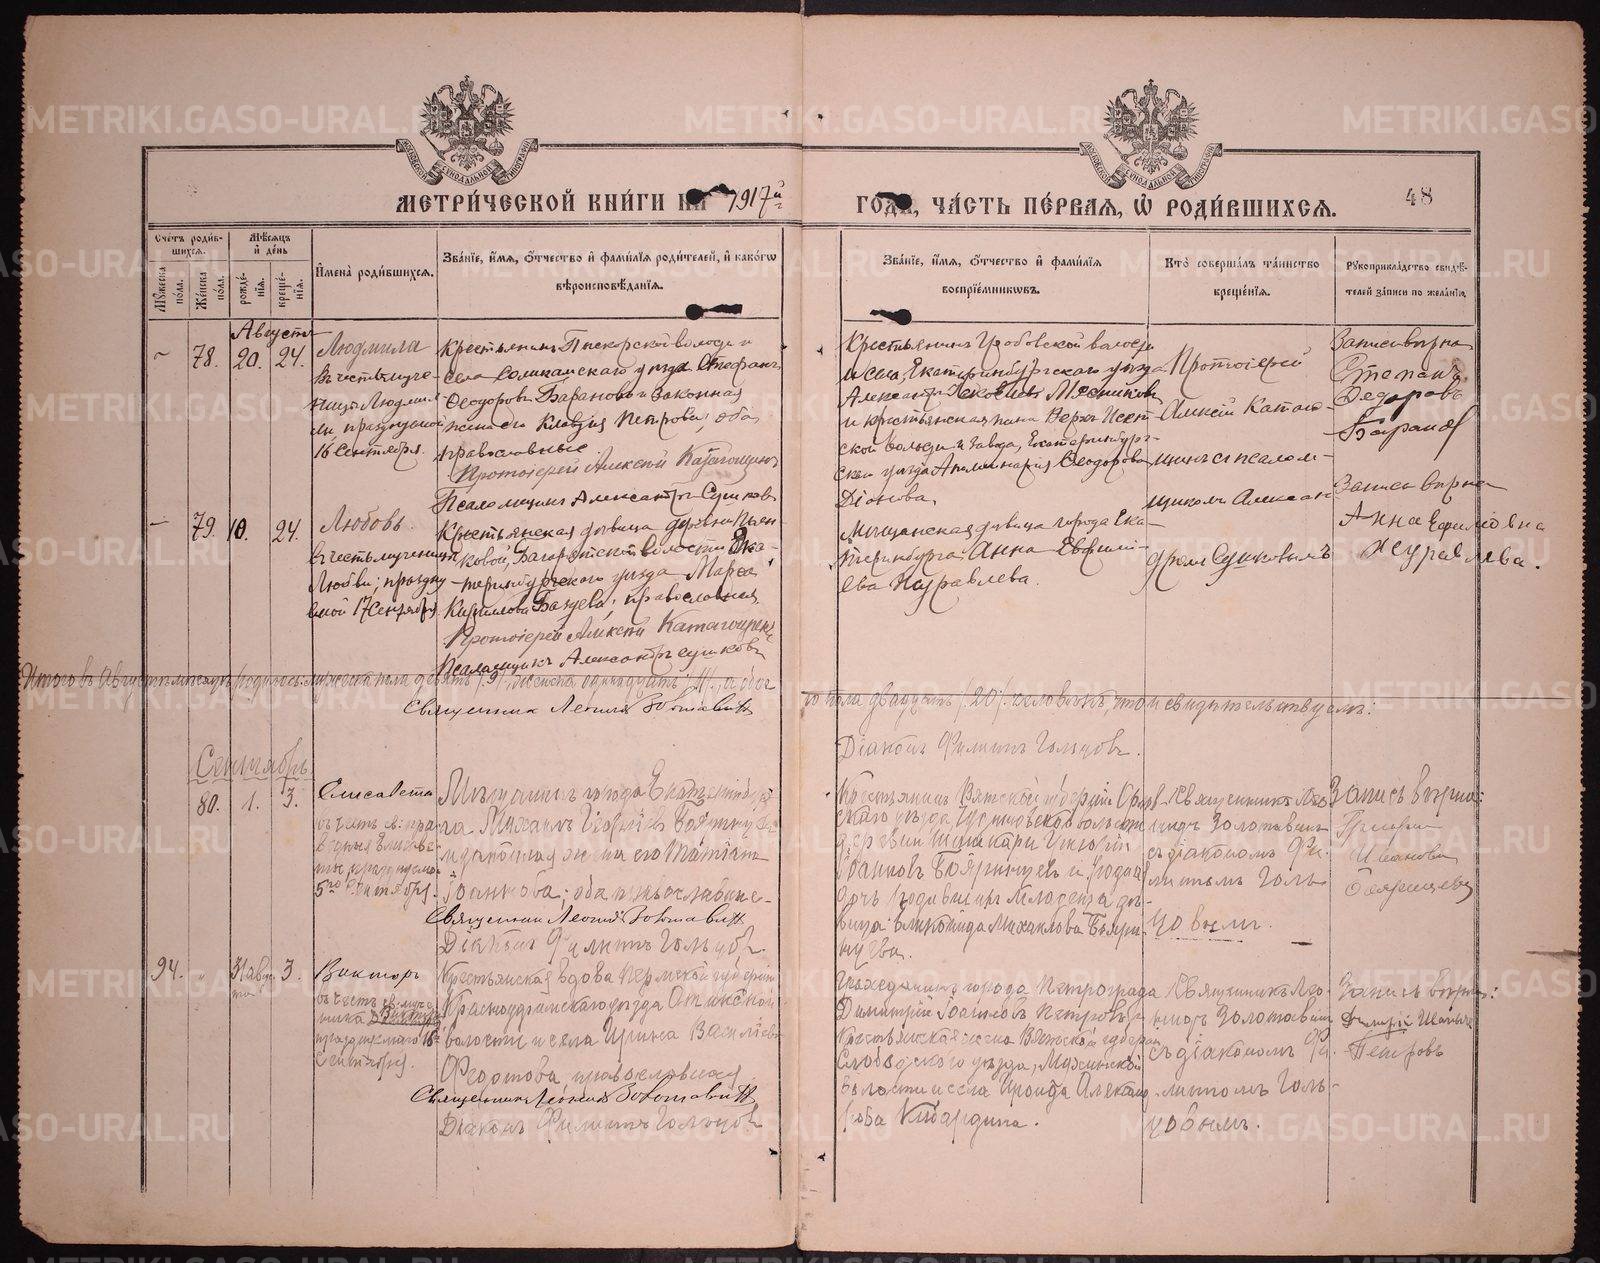 МЕТРИ́ЧЕСКОЙ КНИ́ГИ НА 1917й
ГОДЪ, ЧА́СТЬ ПЕ́РВАЯ, Ѡ РОДИ́ВШИХСѦ.
48
Сче́тъ роди́в-
шихсѧ.
Мѣ́сѧцъ
и҆ де́нь
Мꙋ́жеска
по́ла.
Же́нска
по́ла.
рожде́-
нїѧ.
креще́-
нїѧ.
И҆мена̀ роди́вшихсѧ.
Зва́нїе, и҆́мѧ, ѻ҆́тчество и҆ фамі́лїѧ роди́телей, и҆ како́гѡ
вѣроисповѣ́данїѧ.
Зва́нїе, и҆́мѧ, ѻ҆́тчество и҆ фамі́лїѧ
воспрїе́мникѡвъ.
Кто̀ соверша́лъ та́инство
креще́нїѧ.
Рꙋкоприкла́дство свидѣ́-
телей за́писи по жела́нїю.
Августъ
78. 20. 24.
Людмила
въ честь муче-
ницы Людми-
лы празднуемой
16 Сентября.
Крестьянинъ Пыскорской волости и
села Соликамскаго уѣзда Стефанъ
Ѳеодоровъ Барановъ и законная
жена его Клавдія Петрова; оба
православные
Протоіерей Алексій Катагощинъ
Псаломщикъ Александръ Сушковъ
Крестьянинъ Гробовской волости
и села, Екатеринбургскаго уѣзда
Александръ Мясниковъ
и крестьянская жена Верхъ-Исет-
ской волости и завода, Екатеринбург-
скаго уѣзда Апполинарія Ѳеодорова
Діонова.
Протоіерей
Алексій Катаго-
щинъ съ псалом-
щикомъ Алексан-
дромъ Сушковымъ
Запись вѣрна
Степанъ
Федоровъ
Барановъ
79. 10. 24.
Любовь.
въ честь мученицы
Любви; праздну-
емой 17 Сентября
Крестьянская дѣвица деревни Пьян-
ковой, Багарякской волости Ека-
теринбургскаго уѣзда Марѳа
Кириллова Баздева; православная.
Протоіерей Алексій Катагощинъ
Псаломщикъ Александръ Сушковъ
Мѣщанская дѣвица города Ека-
теринбурга Анна Евфимі-
ева Журавлева.
Запись вѣрна
Анна Ефимовна
Журавлева.
Итого въ Августѣ мѣсяцѣ родилось: мужска пола девять /9/, женска одиннадцать /11/, а обо-
его пола двадцать /20/ человѣкъ, что и свидѣтельствуемъ:
Священникъ Леонидъ Золотавинъ
Діаконъ Филиппъ Гольцовъ.
Сентябрь.
80. 1. 3.
Елисавета
въ честь св. пра-
ведныя Елисаве-
ты, празднуемой
5го Сентября.
Мѣщанинъ города Екатеринбур-
га Михаилъ Георгіевъ
и законная жена его Татіана
Іоаннова; оба православные.
Священникъ Леонидъ Золотавинъ
Діаконъ Филиппъ Гольцовъ.
Крестьянинъ Вятской губерніи Орлов-
скаго уѣзда волости
деревни
Іоанновъ Бояринцевъ и родная
дочь родившихъ младенца дѣ-
вица Михаилова Бояри-
нцева.
Священникъ Лео-
нидъ Золотавинъ
съ діакономъ Фи-
липпомъ Голь-
цовымъ.
Запись вѣрна:
Ивановъ
Бояринцевъ
94. 31 авгу-
ста 3.
Викторъ
въ честь св. муче-
ника Виктора
празднуемаго 16го
Сентября.
Крестьянская вдова Пермской губерніи
Красноуфимскаго уѣзда Ачитской
волости и села Ирина Василіева
Ѳедотова, православная
Священникъ Леонидъ Золотавинъ
Діаконъ Филиппъ Гольцовъ
Гражданинъ города Петрограда
Димитрій Іоанновъ Петровъ и
крестьянская жена Вятской губерніи
Слободского уѣзда,
волости и села Ираида Алексан-
дрова
Священникъ Лео-
нидъ Золотавинъ
съ діакономъ Фи-
липпомъ Голь-
цовымъ.
Запись вѣрна:
Дмитрій Иванычъ
Петровъ
METRIKI.GASO-URAL.RU